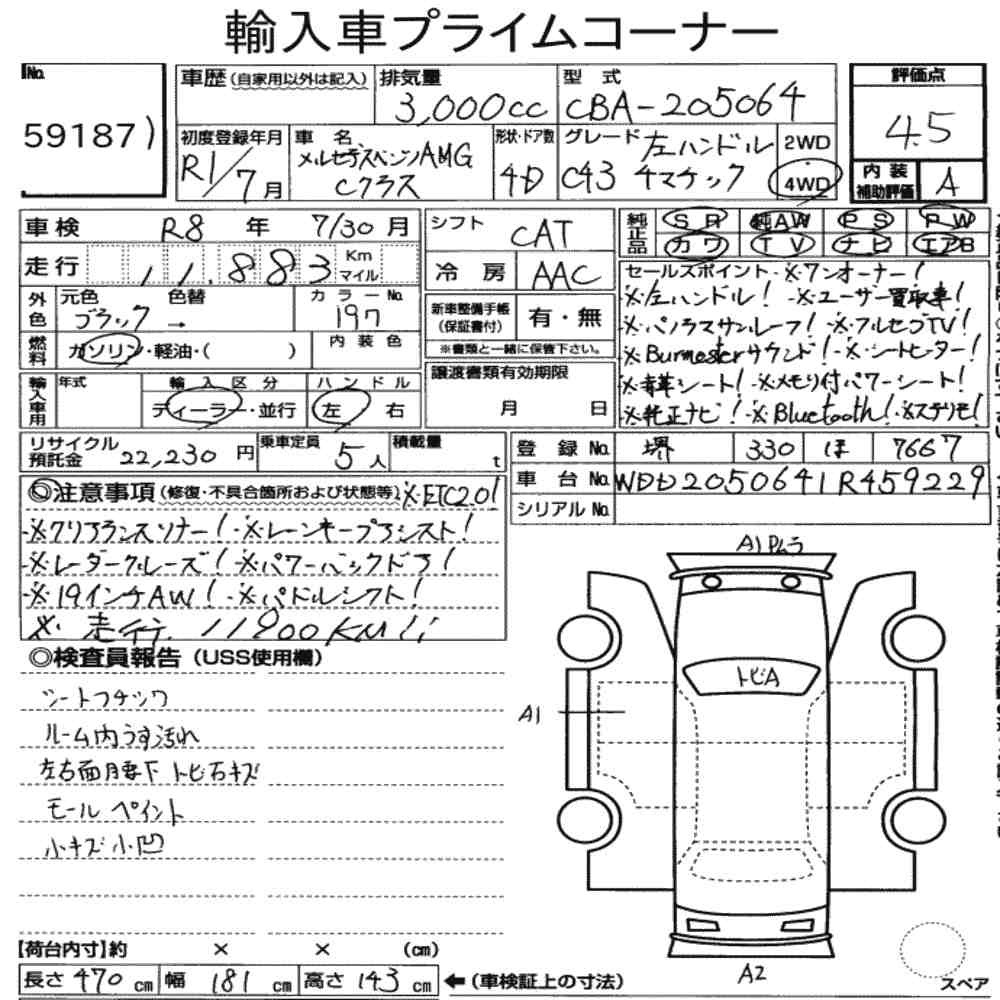 輸入車プライムコーナー
No.
59187)
車歴(自家用以外は記入)
排気量 3,000cc
型式 CBA-205064
初度登録年月 R1/7月
車名 メルセデスベンツAMG Cクラス
形状・ドア数 4D
グレード 左ハンドル C43 4マチック
2WD
4WD
評価点
4.5
内装補助評価 A
車検 R8年 7/30月
走行 11,883 Km マイル
外色 元色 ブラック 色替 → カラーNo. 197
燃料 ガソリン・軽油・( ) 内装色
輸入車用 年式 輸入区分 ディーラー・並行 ハンドル 左 右
シフト CAT
冷房 AAC
新車整備手帳(保証書付) 有・無
※書類と一緒に保管下さい。
譲渡書類有効期限
月 日
純正品 SR 純AW PS PW
カワ TV ナビ エアB
セールスポイント ※ワンオーナー!
※左ハンドル! ※ユーザー買取車!
※パノラマサンルーフ! ※フルセグTV!
※Burmesterサウンド! ※シートヒーター!
※赤革シート! ※メモリ付パワーシート!
※純正ナビ! ※Bluetooth! ※ステリモ!
リサイクル預託金 22,230円 乗車定員 5人 積載量 t
登録No. 堺 330 ほ 7667
車台No. WDD2050641R459229
シリアルNo.
◎注意事項(修復・不具合箇所および状態等) ※ETC2.0!
※クリアランスソナー! ※レーンキープアシスト!
※レーダークルーズ! ※パワーバックドア!
※19インチAW! ※パドルシフト!
※走行 11900KM!!
◎検査員報告(USS使用欄)
シートフチツワ
ルーム内うす汚れ
左右面月要下 トビ石キズ
モール ペイント
小キズ小凹
A1 Pムラ
トビA
A1
A2
スペア
【荷台内寸】約 × × (cm)
長さ 470cm 幅 181cm 高さ 143cm ←(車検証上の寸法)